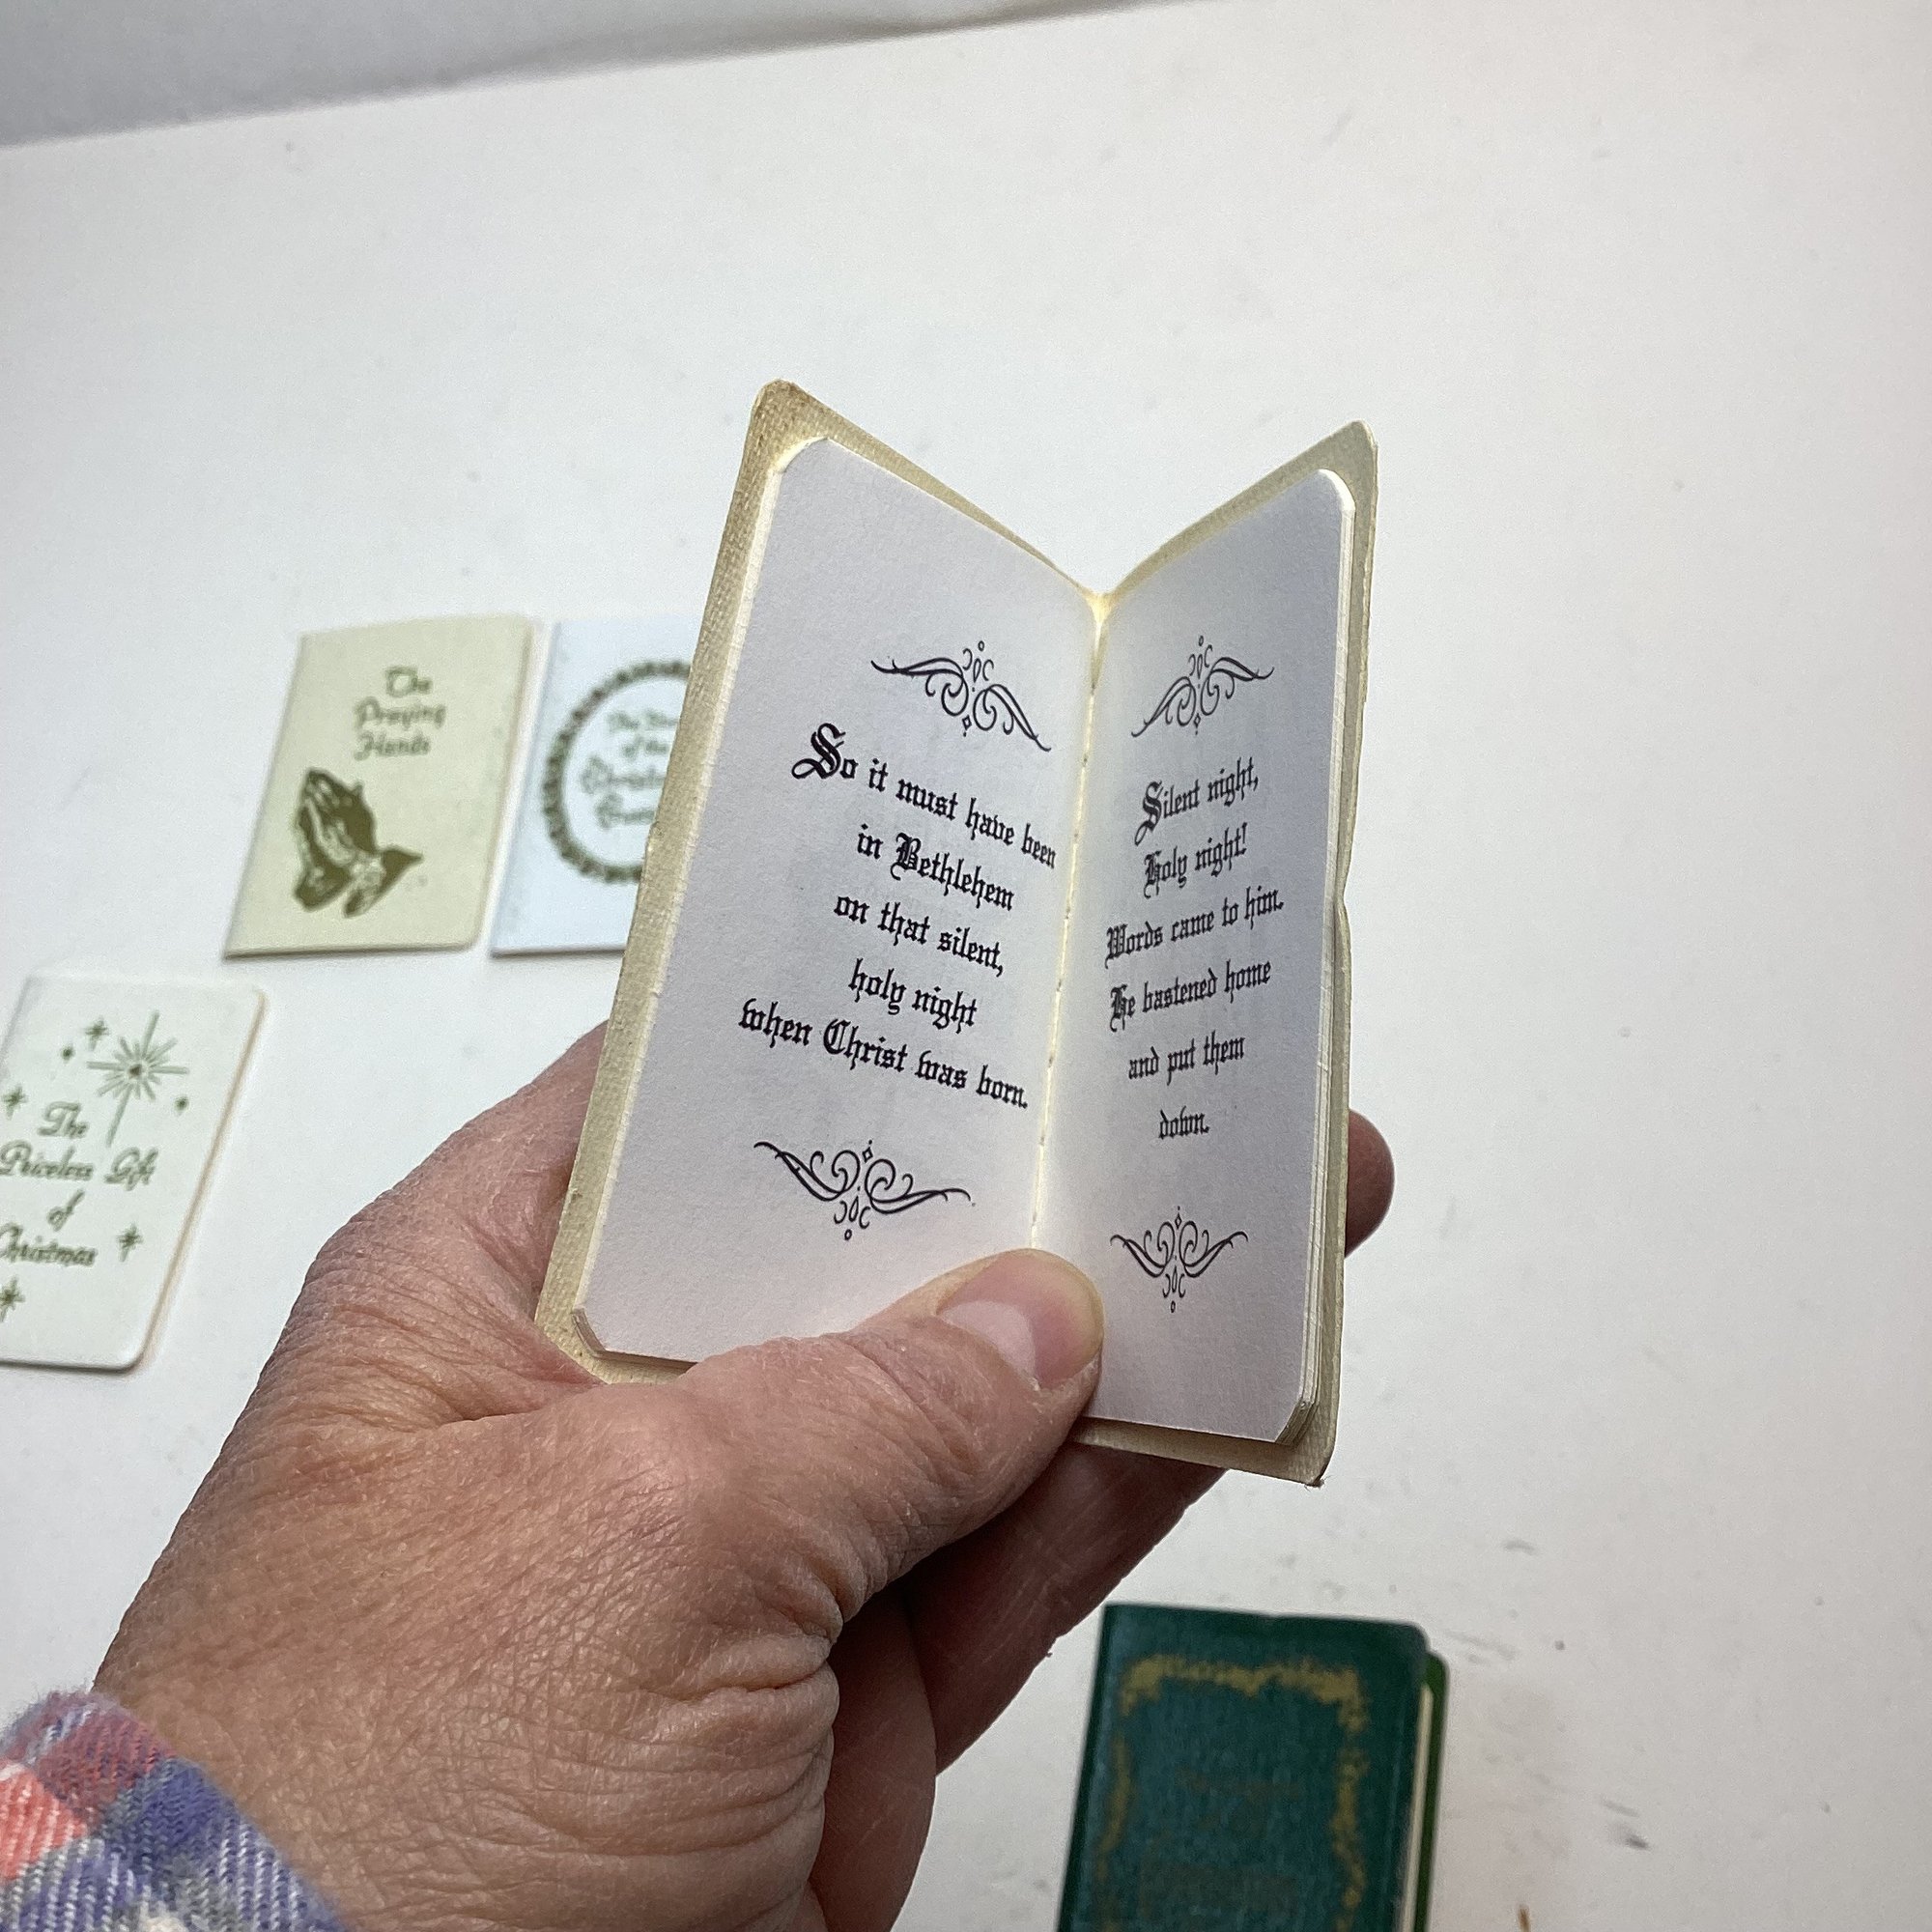 The
Praying
Hands
of the
The
Priceless Gift
of
Christmas
So it must have been
in Bethlehem
on that silent,
holy night
when Christ was born.
Silent night,
Holy night!
Words came to him.
He hastened home
and put them
down.